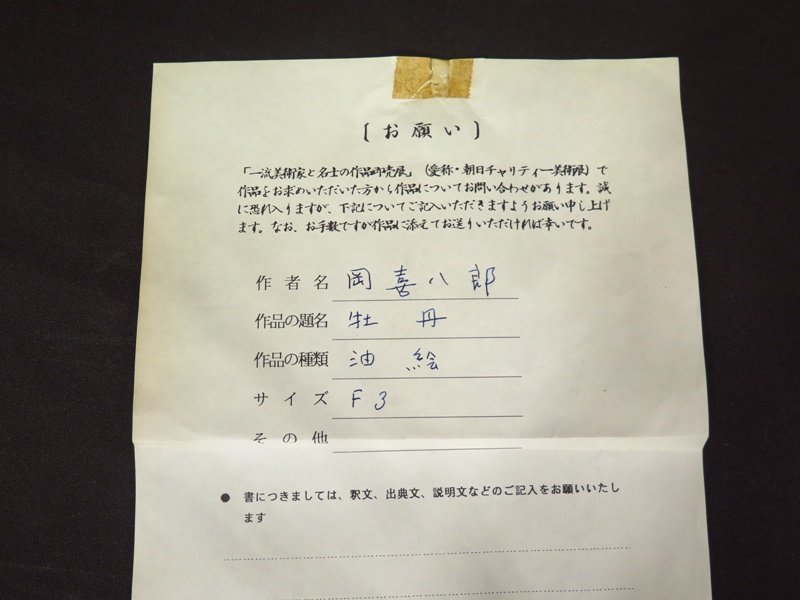 〔お願い〕
「一流美術家と名士の作品即売展」（愛称・朝日チャリティー美術展）で
作品をお求めいただいた方から作品についてお問い合わせがあります。誠
に恐れ入りますが、下記についてご記入いただきますようお願い申し上げ
ます。なお、お手数ですが作品に添えてお送りいただければ幸いです。
作者名 岡喜八郎
作品の題名 牡丹
作品の種類 油絵
サイズ F3
その他
● 書につきましては、釈文、出典文、説明文などのご記入をお願いいたし
ます